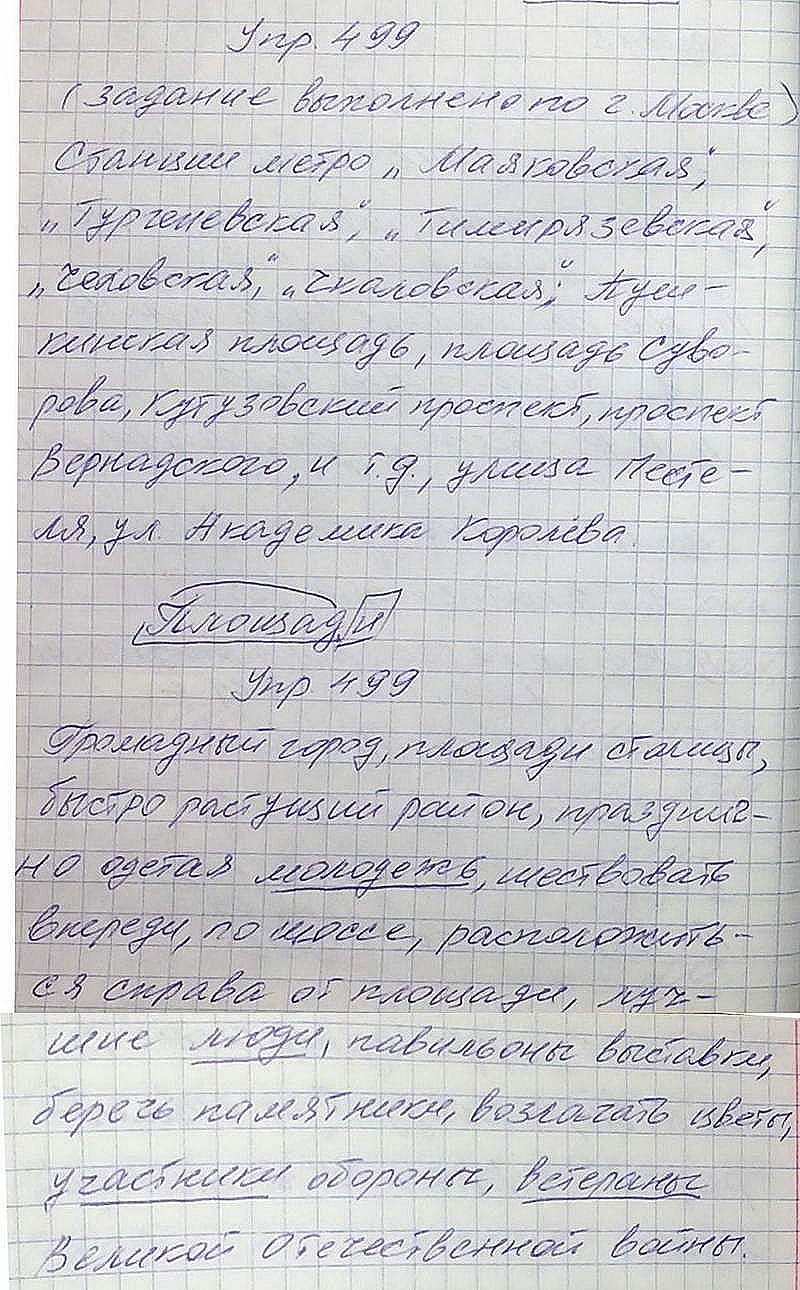 Упр. 499
(задание выполнено по г. Москве)
Станции метро „Маяковская",
„Тургеневская", „Тимирязевская",
„Чеховская", „Чкаловская"; Пуш-
кинская площадь, площадь Суво-
рова, Кутузовский проспект, проспект
Вернадского, и т.д., улица Песте-
ля, ул. Академика Королёва.
Площади
Упр. 499
Громадный город, площади столицы,
быстро растущий район, празднич-
но одетая молодежь, шествовать
впереди, по шоссе, расположить-
ся справа от площади, луч-
шие люди, павильоны выставки,
беречь памятники, возлагать цветы,
участники обороны, ветераны
Великой Отечественной войны.